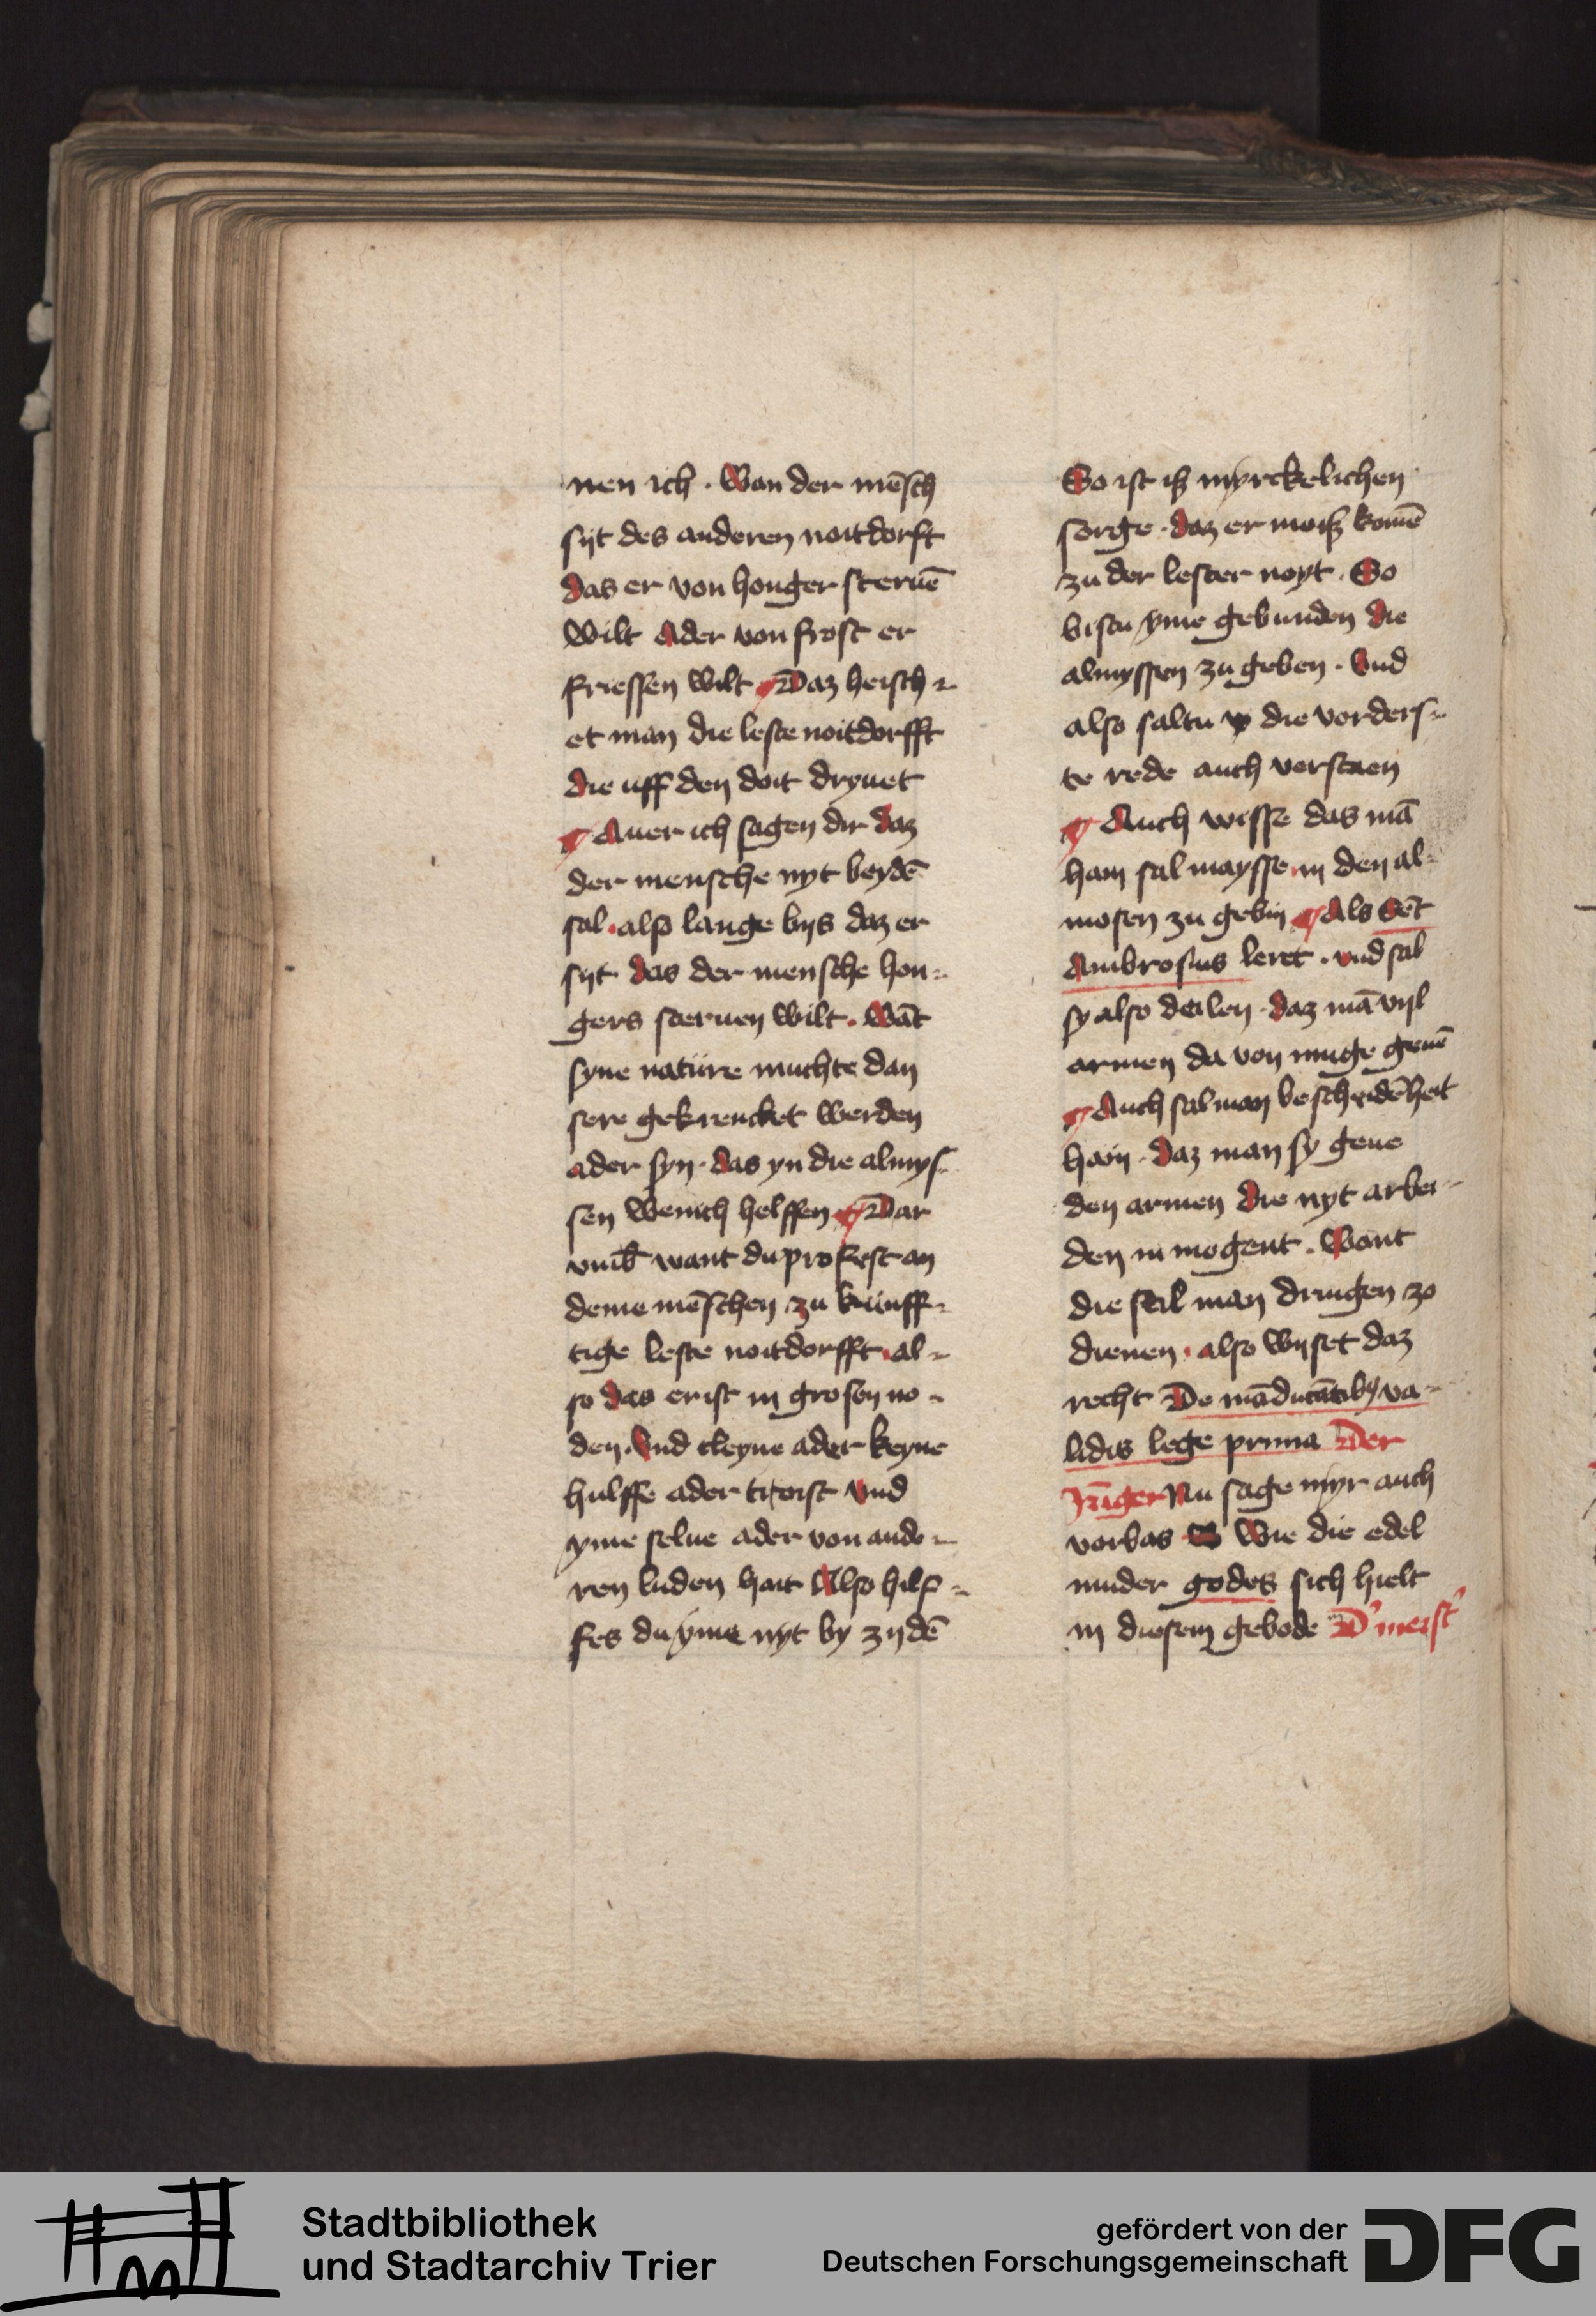 nen ich · Wan der mēsch
syt des anderen noitdorft
das er von honger steruē
wilt Ader von frost er
friessen wilt ¶ Daz heisch
et man die leste noitdorfft
die uff den doit dryuet
¶ Auer ich sagen dir daz
der mensche nyt beydē
sal · also lange bys daz er
syt das der mensche hon
gers steruen wilt · Wāt
syne natüre muchte dan
sere gekrencket werden
ader syn · das yn die almys
sen wenich helffen ¶ Dar
vmb want du profest an
deme mēschen zu künff
tige leste noitdorfft · al
so das er ist in grosen no
den · Vnd cleyne ader keyne
hulffe ader troist Vnd
yme selue ader von ande
ren luden hait Also hilf
fes du yme nyt by zydē
So ist iß myrckelichen
sorge · daz er moiß komē
zu der lester noyt · So
bistu yme gebunden die
almyssen zu geben · Vnd
also saltu die vorders
te rede auch verstaen
¶ Auch wisse das mā
hain sal maysse in den al
mosen zu gebin ¶ Als Sēt
Ambrosius leret · vnd sal
sy also deilen · daz mā vyl
armen da von muge geuē
¶ Auch sal man bescheidēheit
hain · daz man sy geue
den armen die nyt arbei
den in mogent · Want
die sal man dringen zo
dienen · also wyset daz
recht De māducātibꝫ va
lidis lege prima Der
Jūger Nu sage myr auch
vorbas Wie die edel
muder godes sich hielt
in diesem gebode D' meist'
Stadtbibliothek
und Stadtarchiv Trier
gefördert von der
Deutschen Forschungsgemeinschaft
DFG